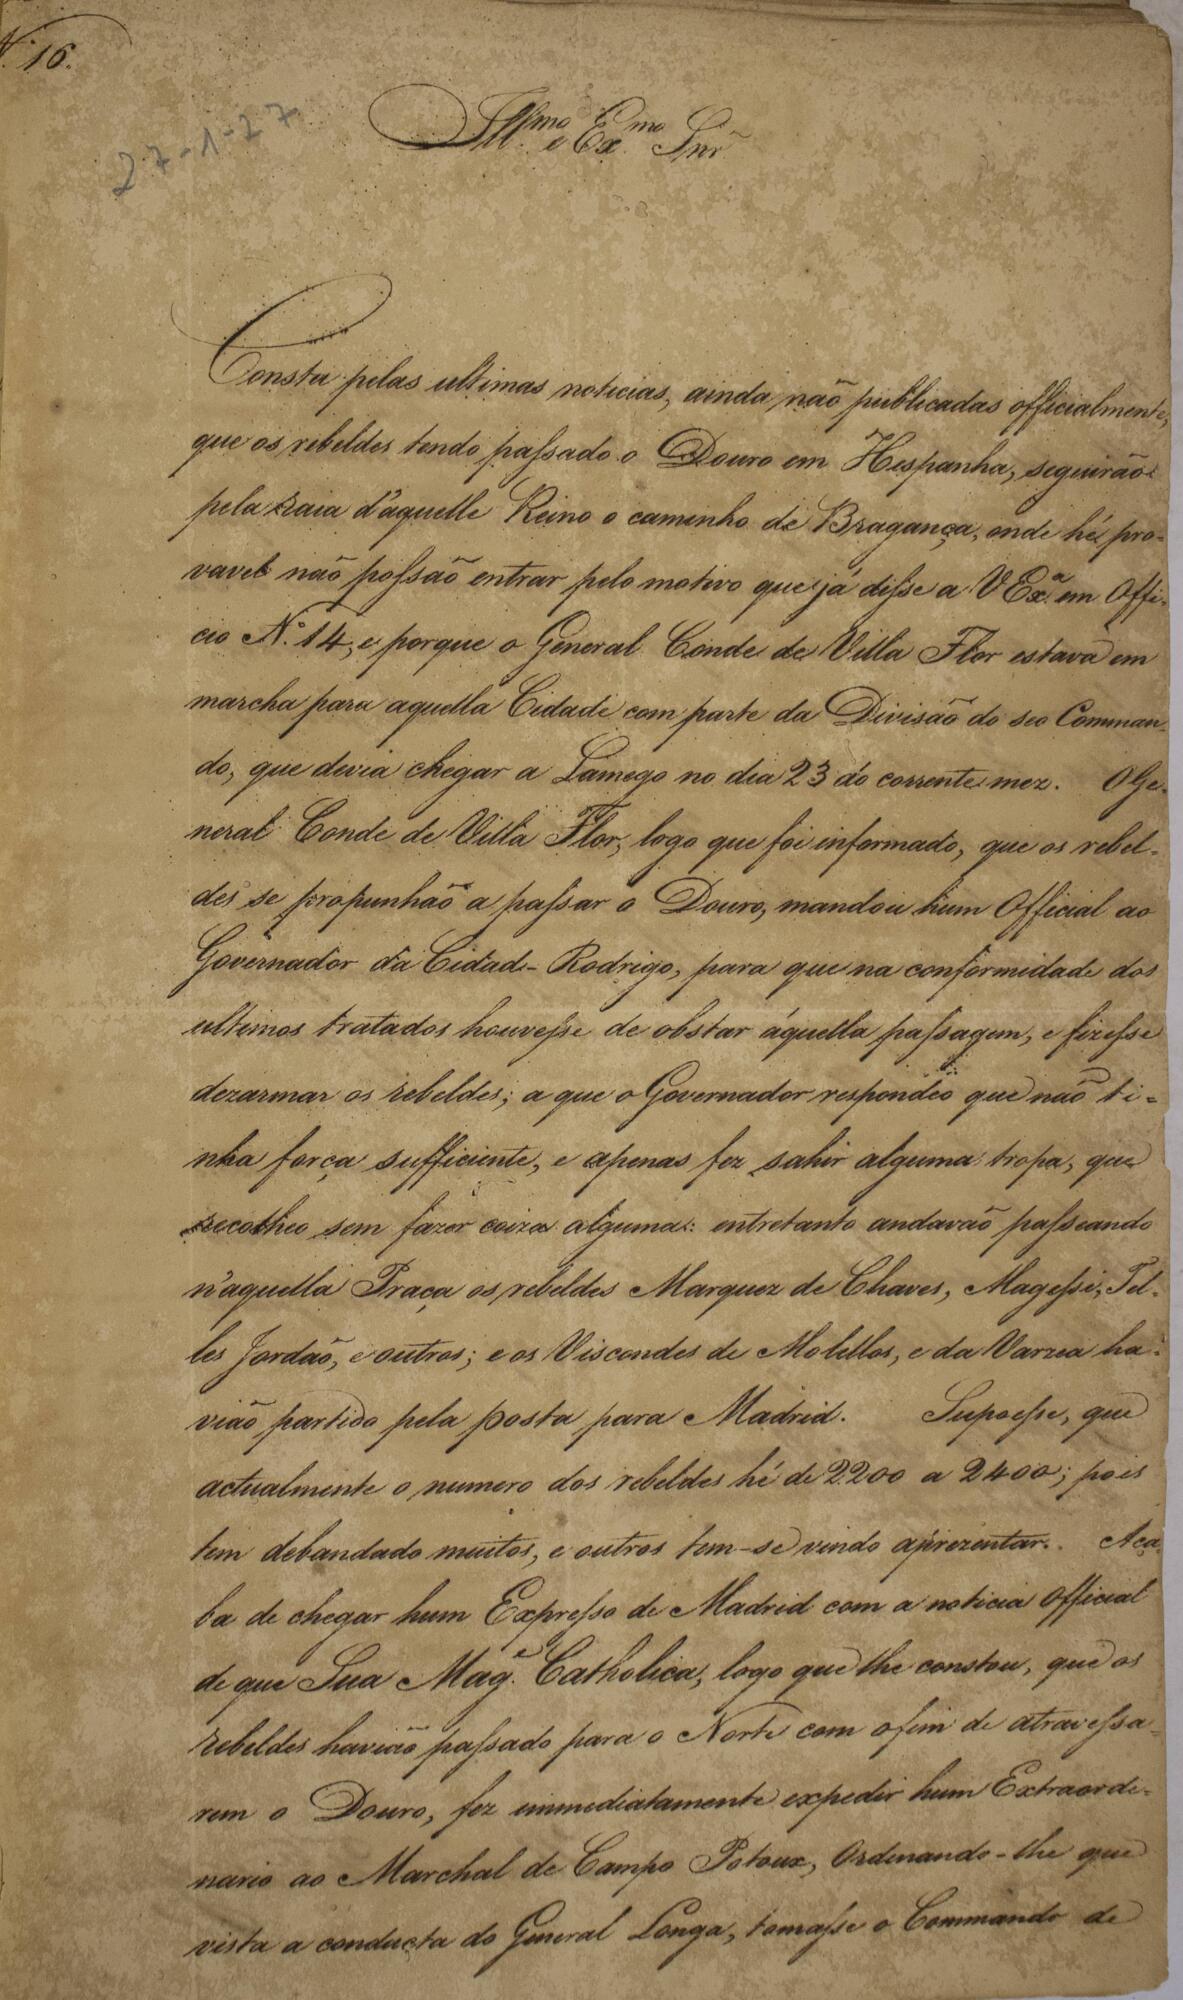 N.º 16.
27-1-27
Ill.mo e Ex.mo Snr
Consta pelas ultimas noticias, ainda não publicadas officialmente,
que os rebeldes tendo passado o Douro em Hespanha, seguirão
pela raia d'aquelle Reino o caminho de Bragança, onde hé pro-
vavel não possão entrar pelo motivo que já disse a V Ex.ª em Offi-
cio N.º 14, e porque o General Conde de Villa Flor estava em
marcha para aquella Cidade com parte da Divisão do seo Comman-
do, que devia chegar a Lamego no dia 23 do corrente mez. O Ge-
neral Conde de Villa Flor, logo que foi informado, que os rebel-
des se propunhão a passar o Douro, mandou hum Official ao
Governador da Cidad-Rodrigo, para que na conformidade dos
ultimos tratados houvesse de obstar áquella passagem, e fizesse
dezarmar os rebeldes; a que o Governador respondeo que não ti-
nha força sufficiente, e apenas fez sahir alguma tropa, que
recolheo sem fazer coiza alguma: entretanto andavão passeando
n'aquella Praça os rebeldes Marquez de Chaves, Magessi, Tel-
les Jordão, e outros; e os Viscondes de Molellos, e da Varzea ha-
vião partido pela posta para Madrid. Supoesse, que
actualmente o numero dos rebeldes hé de 2200 a 2400; pois
tem debandado muitos, e outros tem-se vindo aprezentar. Aca-
ba de chegar hum Expresso de Madrid com a noticia Official
de que Sua Mag.e Catholica, logo que lhe constou, que os
rebeldes havião passado para o Norte com o fim de atravessa-
rem o Douro, fez immediatamente expedir hum Extraorde-
nario ao Marchal de Campo Potoux, Ordenando-lhe que
vista a conducta do General Longa, tomasse o Commando de